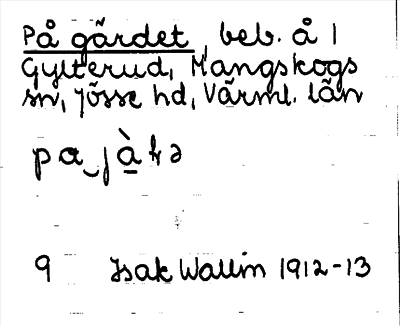 På gärdet, beb. å 1
Gylterud, Mangskogs
sn, Jösse hd, Värml. län
pa‿jà̱tə
9 Isak Wallin 1912-13